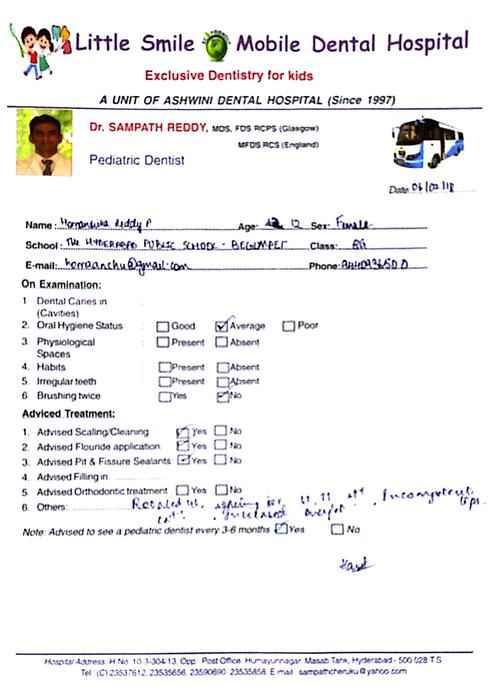 Little Smile Mobile Dental Hospital
Exclusive Dentistry for kids
A UNIT OF ASHWINI DENTAL HOSPITAL (Since 1997)
Dr. SAMPATH REDDY, MDS, FDS RCPS (Glasgow)
MFDS RCS (England)
Pediatric Dentist
Date:
Name: Reddy P Age: 12 Sex: Female
School: The HYDERABAD PUBLIC SCHOOL - BEGUMPET Class:
E-mail: Phone:
On Examination:
1 Dental Caries in :
(Cavities)
2. Oral Hygiene Status : Good Average Poor
3. Physiological : Present Absent
Spaces
4. Habits : Present Absent
5. Irregular teeth : Present Absent
6 Brushing twice : Yes No
Adviced Treatment:
1. Advised Scaling/Cleaning : Yes No
2. Advised Flouride application: Yes No
3. Advised Pit & Fissure Sealants Yes No
4. Advised Filling in
5 Advised Orthodontic treatment Yes No
6. Others: Incompetent
Increased overjet lips
Note: Advised to see a pediatric dentist every 3-6 months Yes No
Hospital Address: H.No. 10-3-304/13, Opp. Post Office, Humayunnagar, Masab Tank, Hyderabad - 500 028 T.S
Tel: (C) 23537612, 23535656, 23590690, 23535858 E-mail: sampathcheruku@yahoo.com